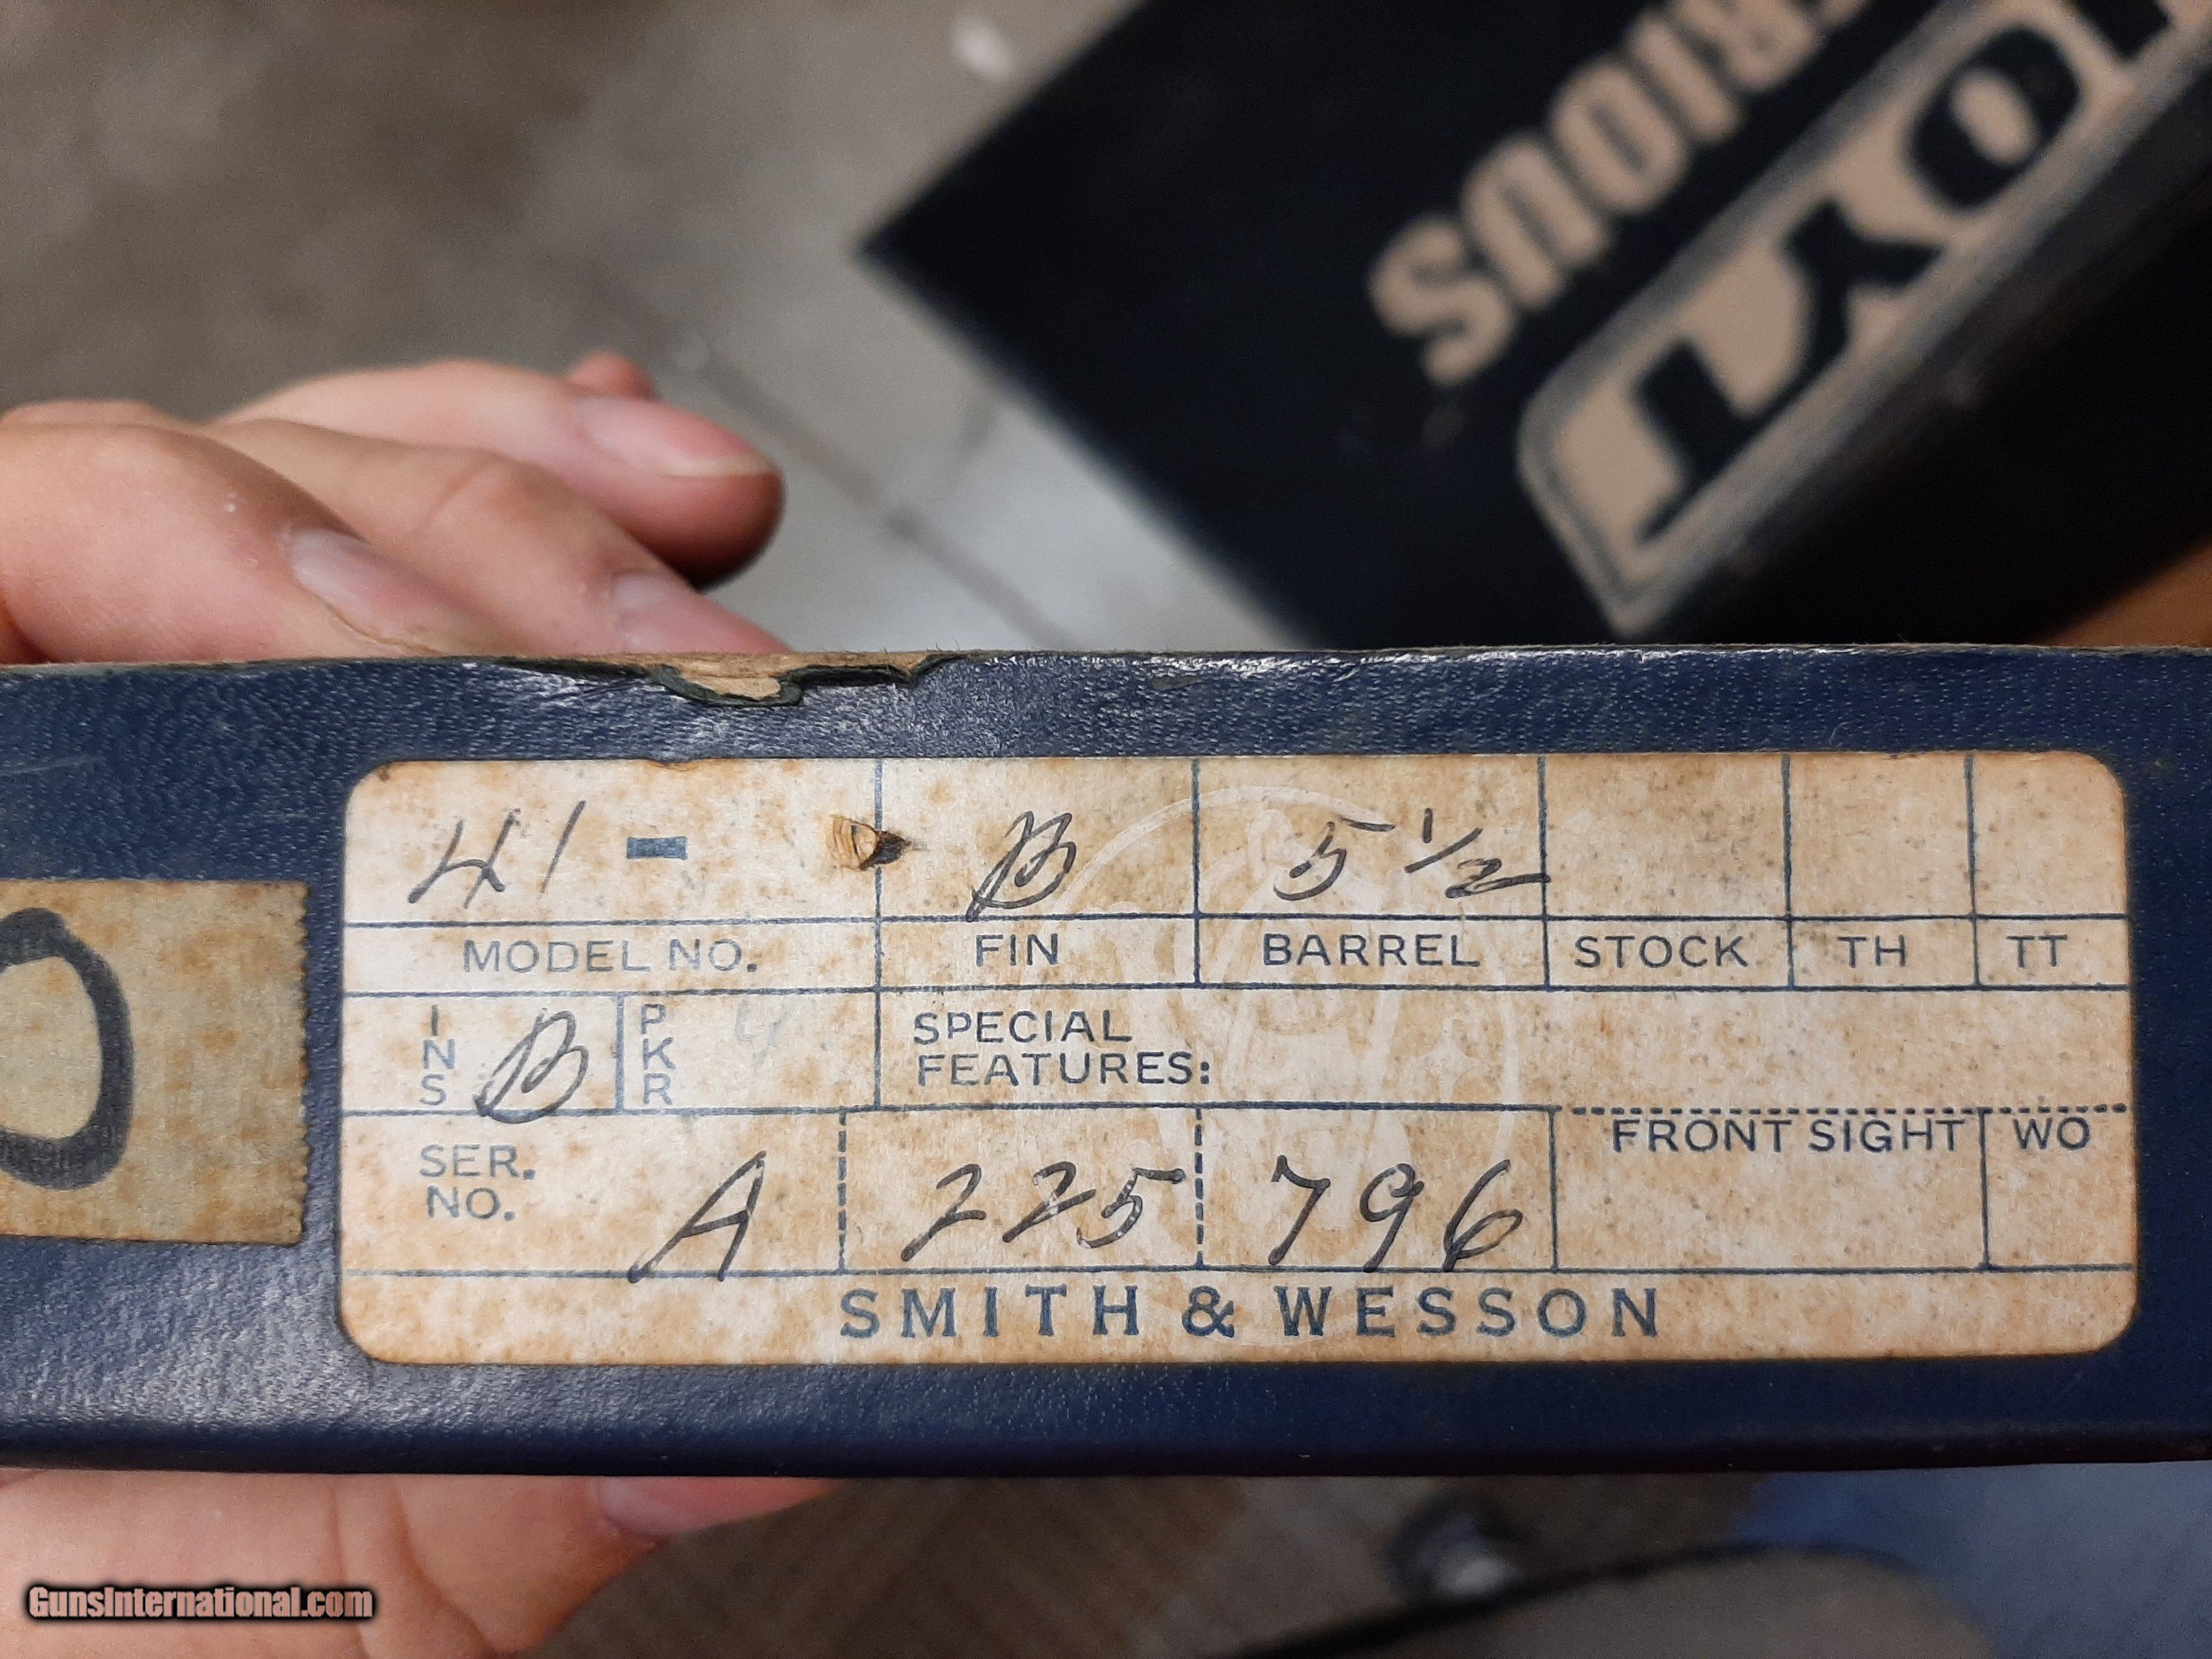 RIOUS
TROY
41 - B 5 1/2
MODEL NO. FIN BARREL STOCK TH TT
INS B PKR 4 SPECIAL
FEATURES:
SER.
NO. A 225 796 FRONT SIGHT WO
SMITH & WESSON
GunsInternational.com